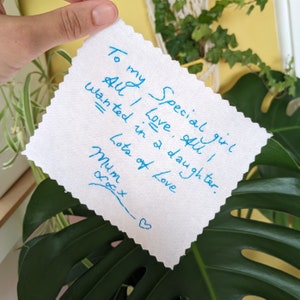 To my Special girl
All I Love. All I
wanted in a daughter.
Lots of Love
Mum
xxx